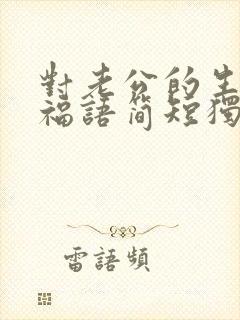 對老公的生
福語简短獨
雷語頻